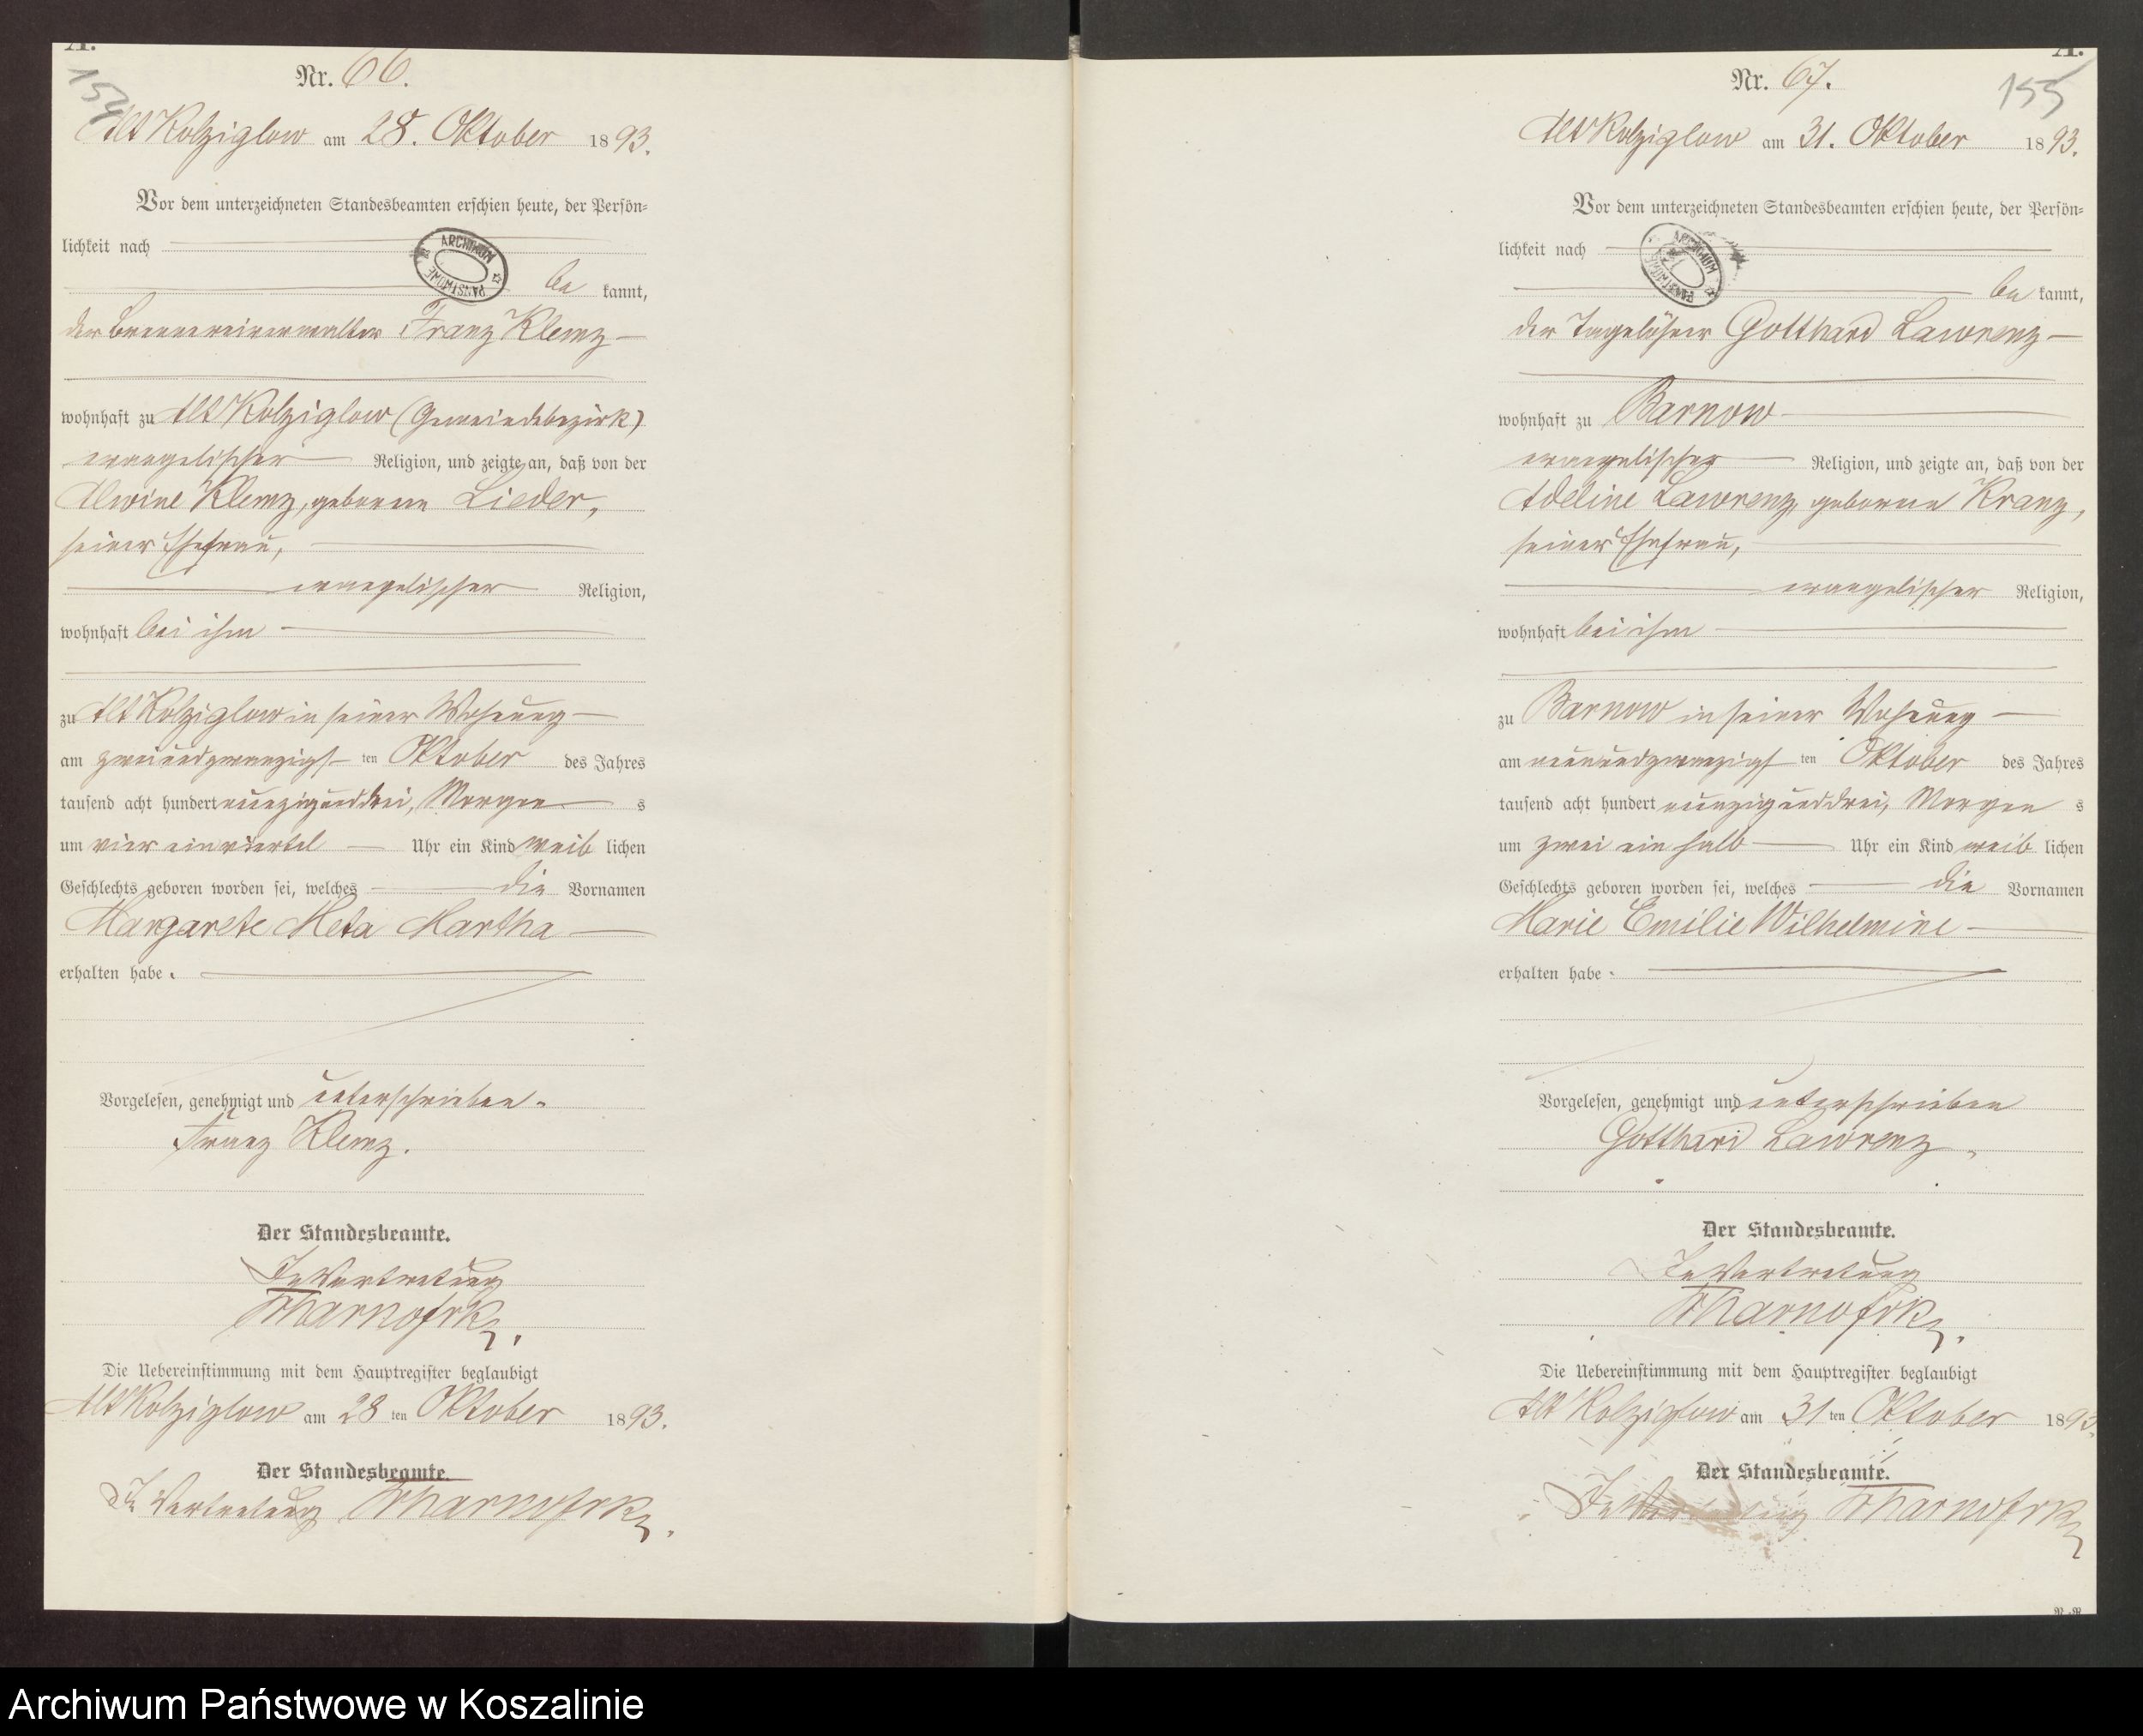 A.
154
Nr. 66.
Alt Kolziglow am 28. Oktober 1893.
Vor dem unterzeichneten Standesbeamten erschien heute, der Persön-
lichkeit nach
be kannt,
der Brennereiverwalter Franz Klemz
wohnhaft zu Alt Kolziglow (Gemeindebezirk)
evangelischer Religion, und zeigte an, daß von der
Alwine Klemz, geborene Lieder,
seiner Ehefrau,
evangelischer Religion,
wohnhaft bei ihm
zu Alt Kolziglow in seiner Wohnung
am zweiundzwanzigsten Oktober des Jahres
tausend acht hundert neunzigunddrei, Morgens
um vier einviertel Uhr ein Kind weiblichen
Geschlechts geboren worden sei, welches die Vornamen
Margarete Meta Martha
erhalten habe.
Vorgelesen, genehmigt und unterschrieben.
Franz Klemz.
Der Standesbeamte.
In Vertretung
Die Uebereinstimmung mit dem Hauptregister beglaubigt
Alt Kolziglow am 28ten Oktober 1893.
Der Standesbeamte.
In Vertretung
ARCHIWUM PAŃSTWOWE
A.
155
Nr. 67.
Alt Kolziglow am 31. Oktober 1893.
Vor dem unterzeichneten Standesbeamten erschien heute, der Persön-
lichkeit nach
be kannt,
der Tagelöhner Gotthard Lawrenz
wohnhaft zu Barnow
evangelischer Religion, und zeigte an, daß von der
Adeline Lawrenz, geborene Kranz,
seiner Ehefrau,
evangelischer Religion,
wohnhaft bei ihm
zu Barnow in seiner Wohnung
am neunundzwanzigsten Oktober des Jahres
tausend acht hundert neunzigunddrei, Morgens
um zwei ein halb Uhr ein Kind weiblichen
Geschlechts geboren worden sei, welches die Vornamen
Marie Emilie Wilhelmine
erhalten habe.
Vorgelesen, genehmigt und unterschrieben
Gotthard Lawrenz.
Der Standesbeamte.
In Vertretung
Die Uebereinstimmung mit dem Hauptregister beglaubigt
Alt Kolziglow am 31ten Oktober 1893.
Der Standesbeamte.
In Vertretung
ARCHIWUM PAŃSTWOWE
Archiwum Państwowe w Koszalinie